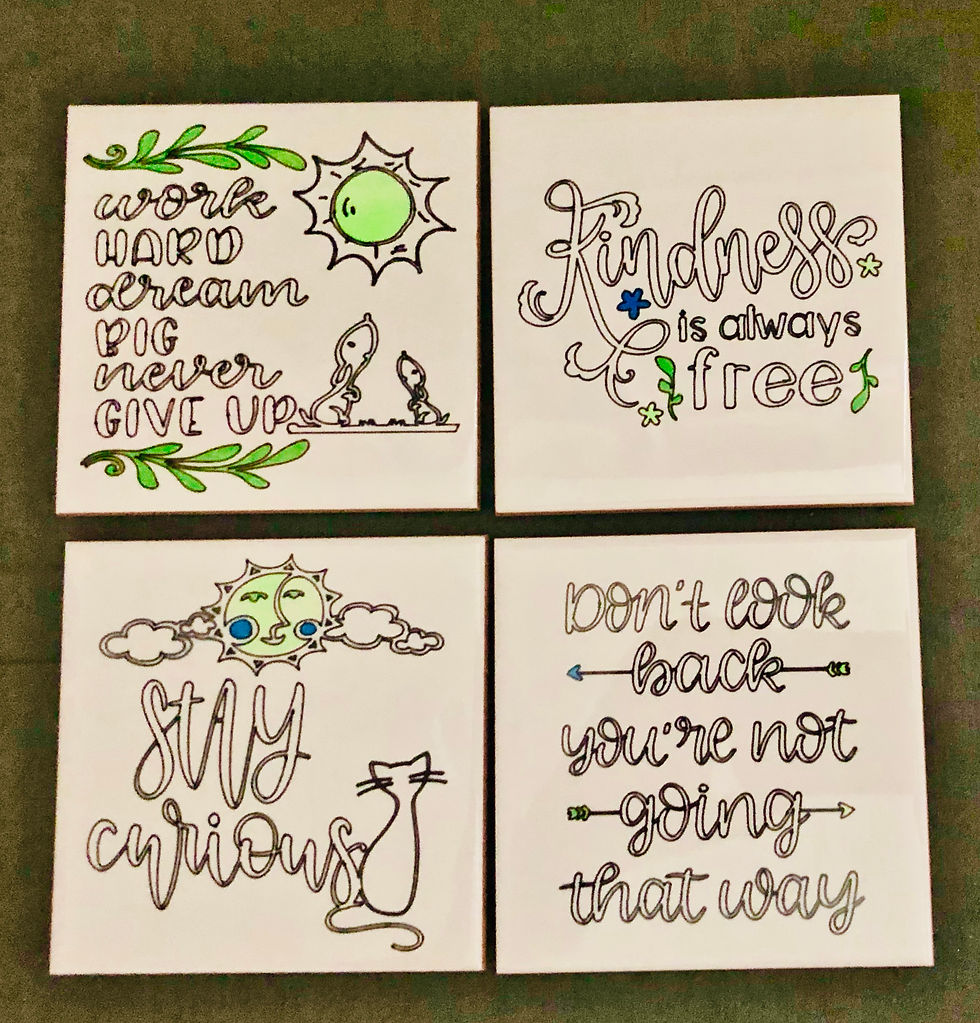 work
HARD
dream
BIG
never
GIVE UP
Kindness
is always
free
stay
curious
Don't look
back
you're not
going
that way